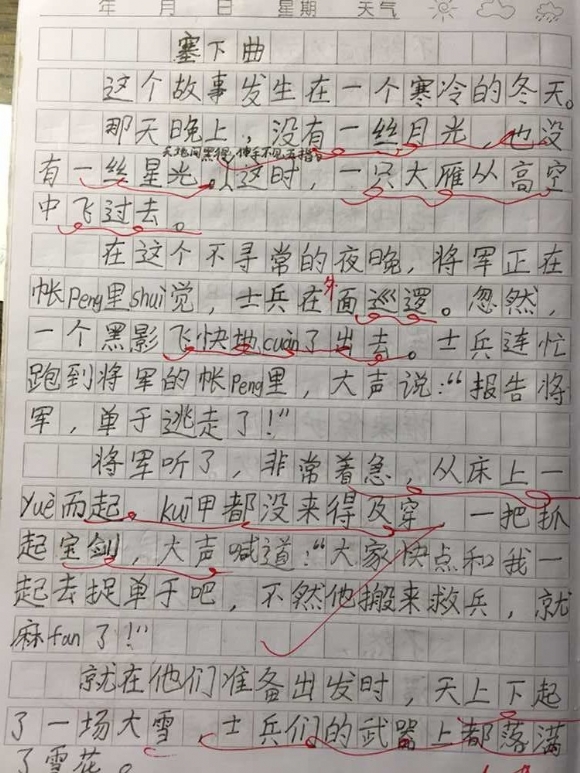 年 月 日 星期 天气
塞下曲
这个故事发生在一个寒冷的冬天。
那天晚上，没有一丝月光，也没
天地间黑得伸手不见五指。
有一丝星光。这时，一只大雁从高空
中飞过去。
在这个不寻常的夜晚，将军正在
帐Peng里shuì觉，士兵在外面巡逻。忽然，
一个黑影飞快地cuàn了出去。士兵连忙
跑到将军的帐Peng里，大声说：“报告将
军，单于逃走了！”
将军听了，非常着急，从床上一
Yuè而起。kuī甲都没来得及穿 一把抓
起宝剑，大声喊道：“大家快点和我一
起去捉单于吧，不然他搬来救兵，就
麻fan了！”
就在他们准备出发时，天上下起
了一场大雪 士兵们的武器上都落满
了雪花。